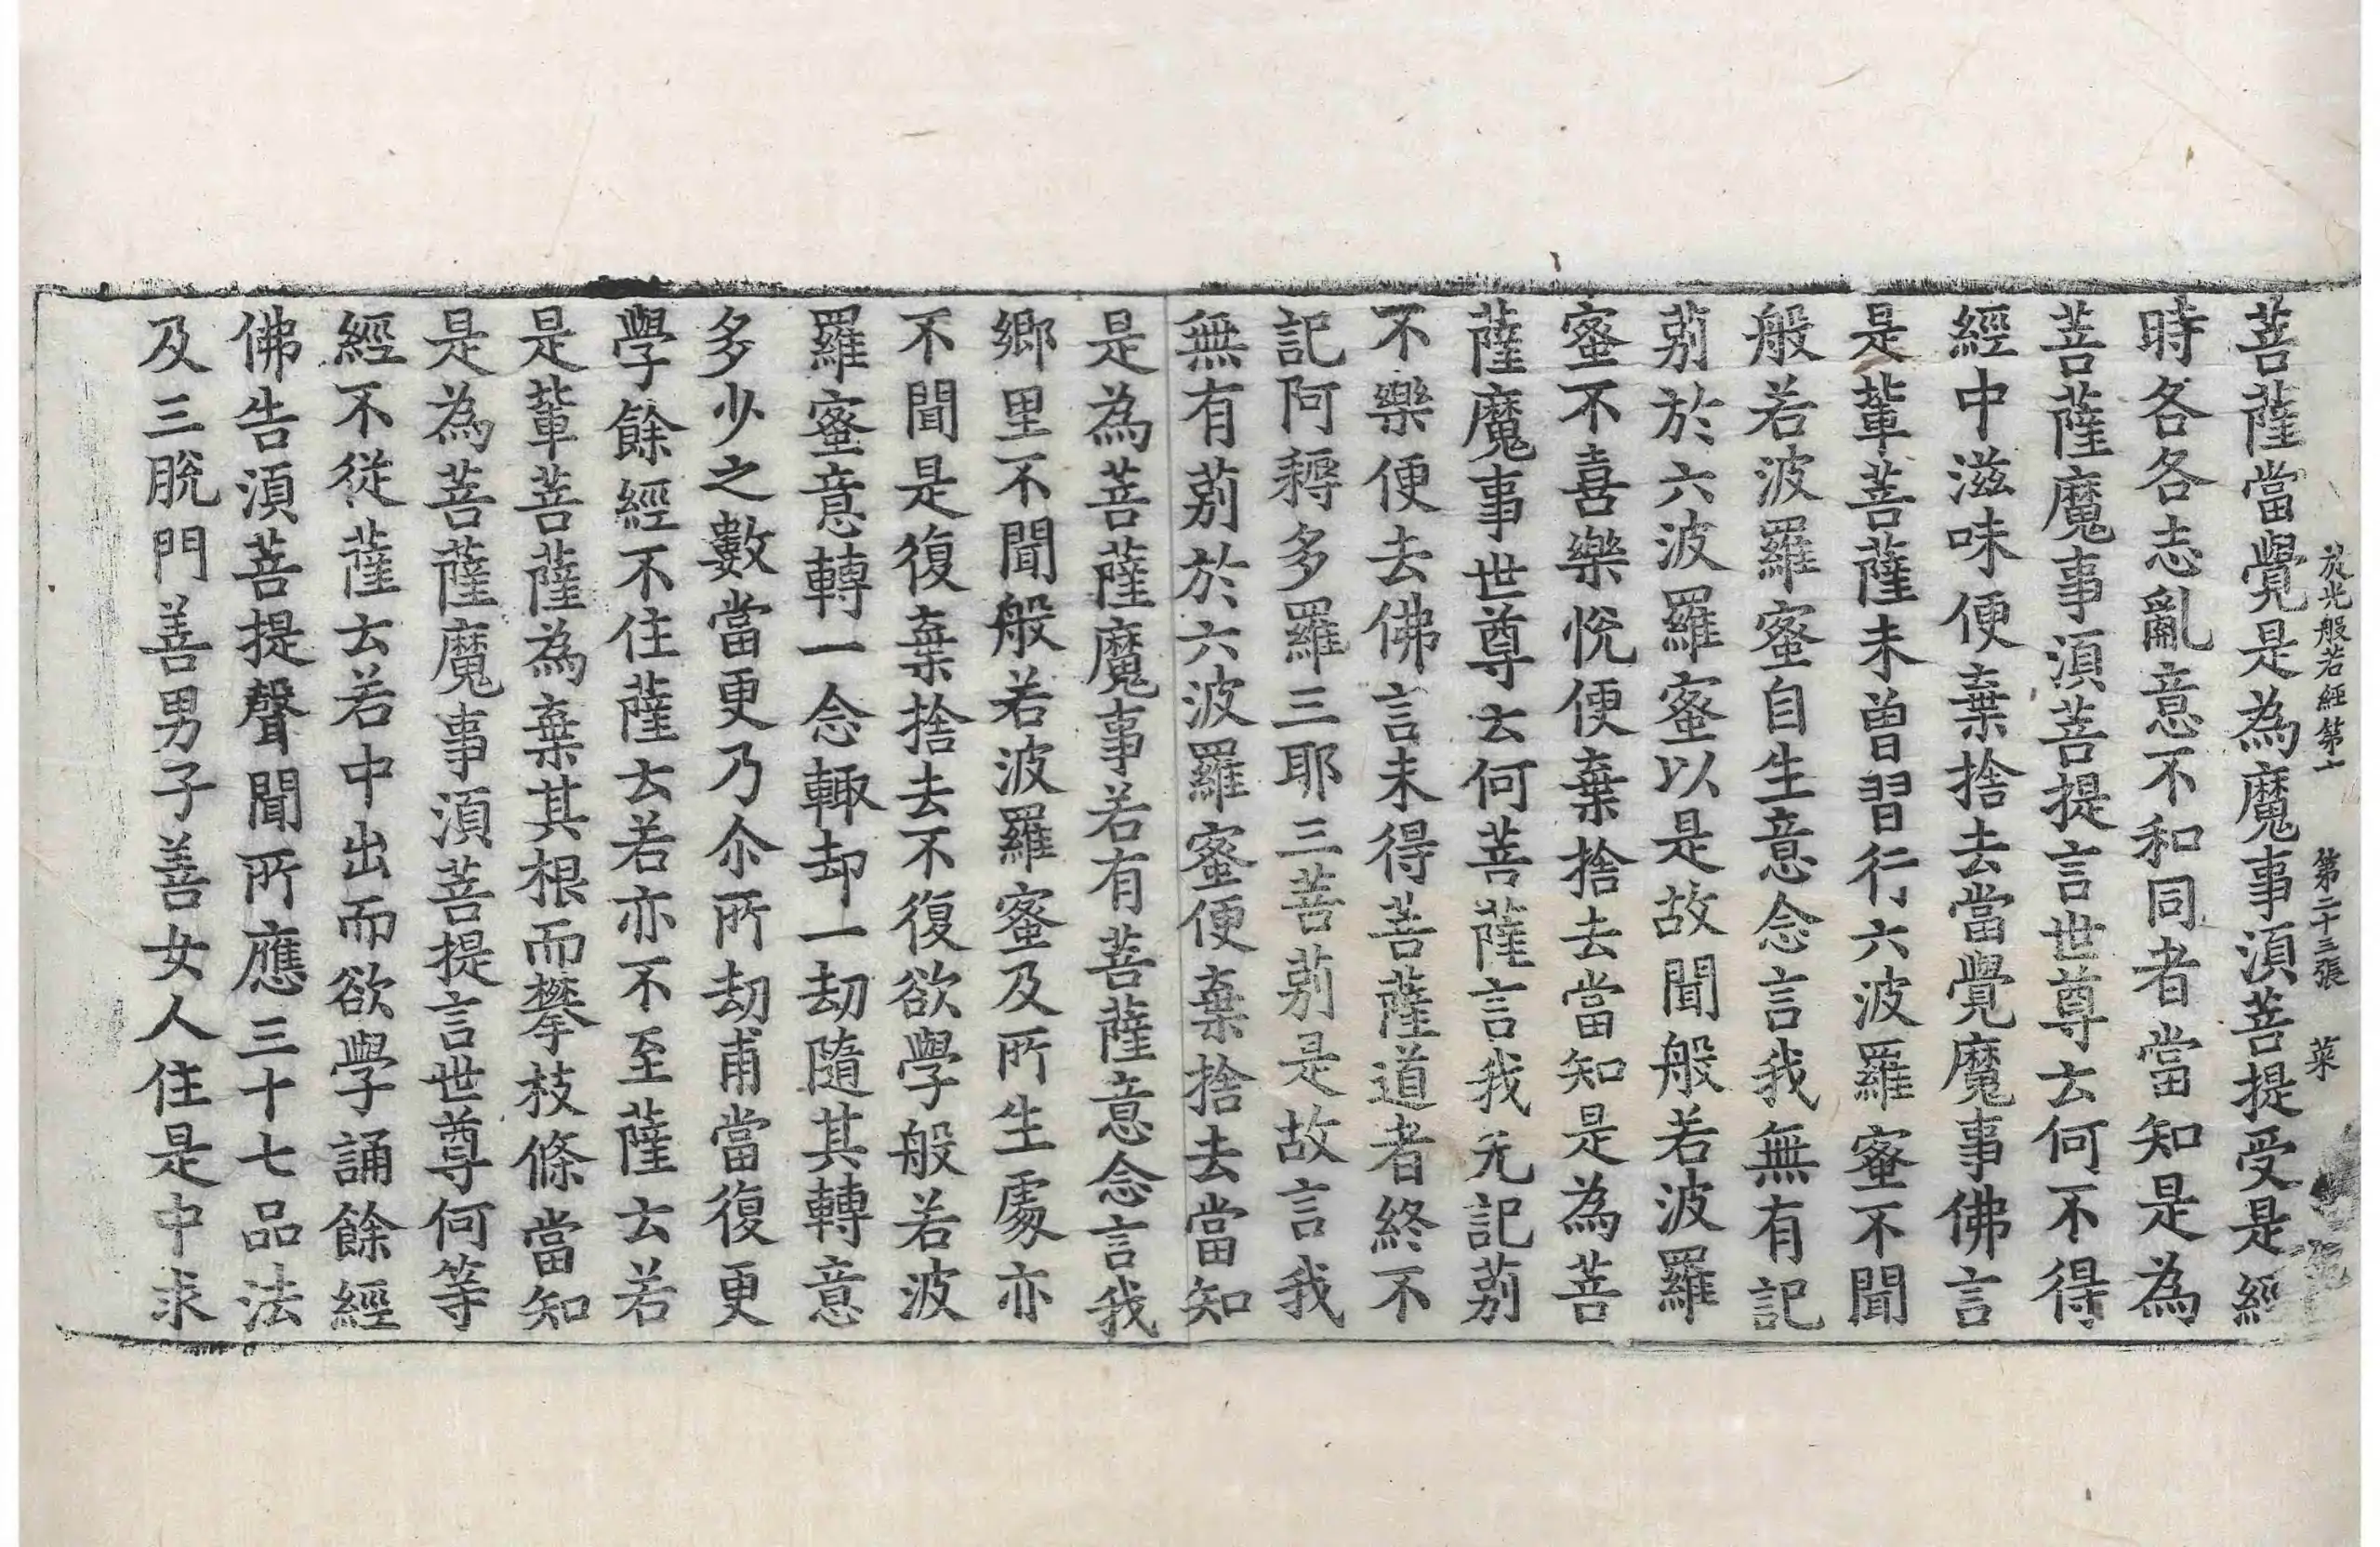 放光般若經第十 第二十三張 菜
菩薩當覺是為魔事湏菩提受是經
時各各志亂意不和同者當知是為
菩薩魔事湏菩提言世尊云何不得
經中滋味便棄捨去當覺魔事佛言
是軰菩薩未曽習行六波羅蜜不聞
般若波羅蜜自生意念言我無有記
莂於六波羅蜜以是故聞般若波羅
蜜不喜樂悅便棄捨去當知是為菩
薩魔事世尊云何菩薩言我无記莂
不樂便去佛言未得菩薩道者終不
記阿耨多羅三耶三菩莂是故言我
無有莂於六波羅蜜便棄捨去當知
是為菩薩魔事若有菩薩意念言我
鄉里不聞般若波羅蜜及所生處亦
不聞是復棄捨去不復欲學般若波
羅蜜意轉一念輙却一劫隨其轉意
多少之數當更乃尒所劫甫當復更
學餘經不住薩云若亦不至薩云若
是軰菩薩為棄其根而攀枝條當知
是為菩薩魔事湏菩提言世尊何等
經不從薩云若中出而欲學誦餘經
佛告湏菩提聲聞所應三十七品法
及三脫門善男子善女人住是中求